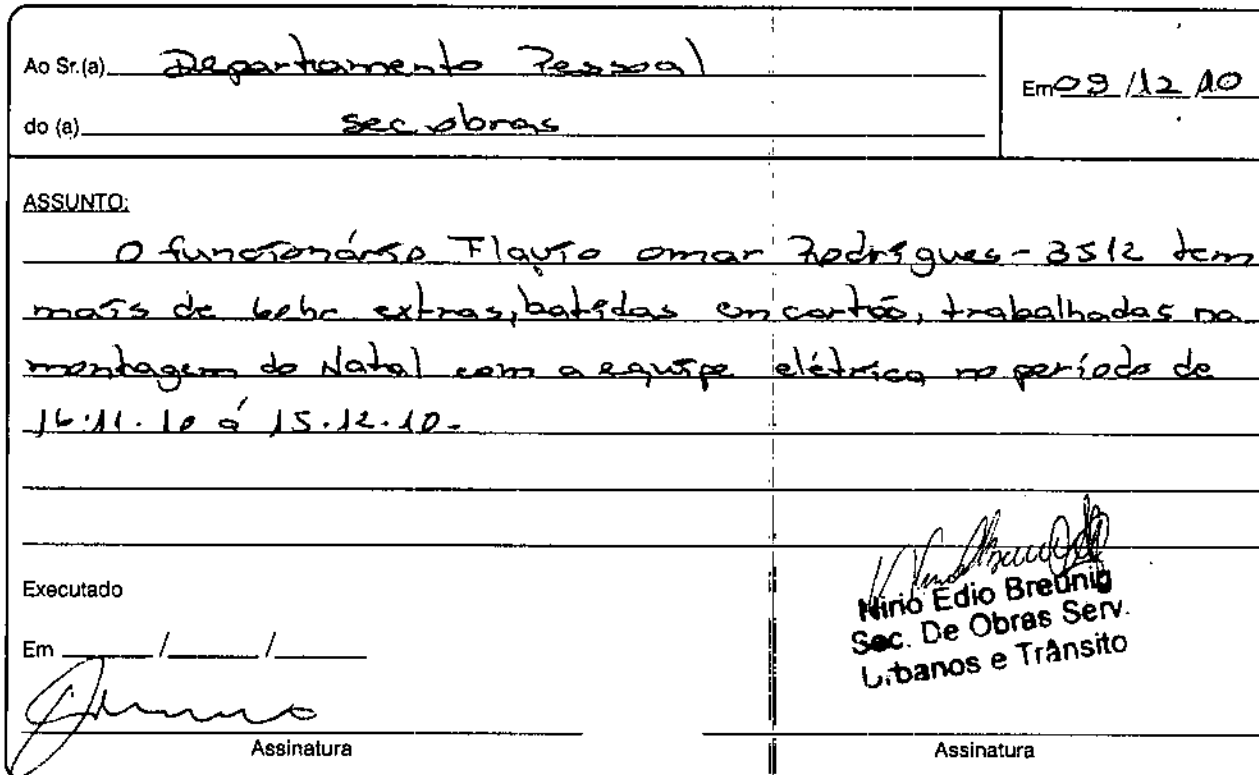 Ao Sr.(a) Departamento Pessoal
Em 09/12/10
do (a) Sec. obras
ASSUNTO:
O funcionário Flavio omar Rodrigues - 3512 tem
mais de extras, batidas em cartão, trabalhadas na
montagem do Natal com a equipe elétrica no período de
16.11.10 á 15.12.10.
Executado
Em ____/____/____
Nirio Edio Breunig
Sec. De Obras Serv.
Urbanos e Trânsito
Assinatura
Assinatura